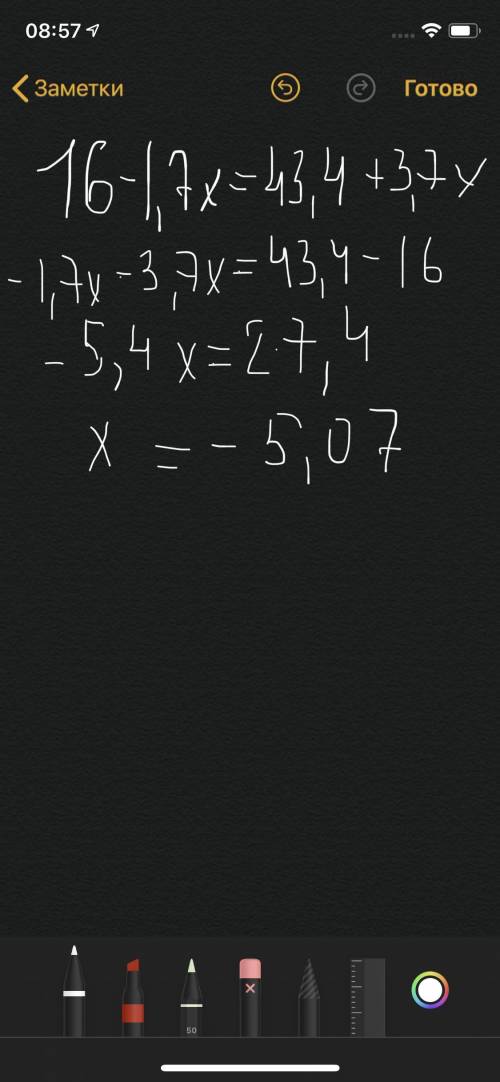 08:57
Заметки Готово
16-1,7x=43,4+3,7x
-1,7x-3,7x=43,4-16
-5,4x=27,4
x=-5,07
50